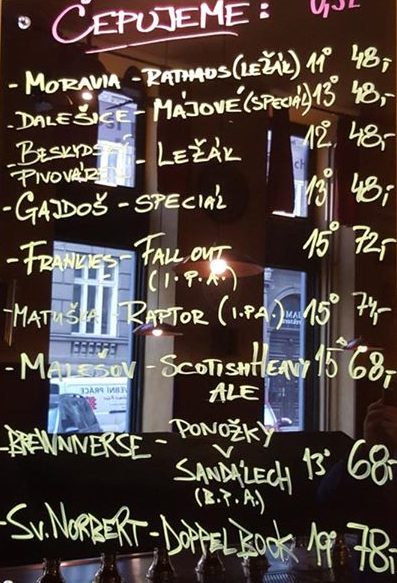 ČEPUJEME: 0,5L
- MORAVIA - RATHAUS (LEŽÁK) 11° 48,-
- DALEŠICE - MÁJOVÉ (SPECIÁL) 13° 48,-
- BESKYDSKÝ PIVOVÁREK - LEŽÁK 12° 48,-
- GAJDOŠ - SPECIÁL 13° 48,-
- FRANKIES - FALL OUT (I.P.A.) 15° 72,-
- MATUŠKA - RAPTOR (I.P.A.) 15° 74,-
- MALEŠOV - SCOTISH HEAVY ALE 15° 68,-
- BREWNIVERSE - PONOŽKY V SANDÁLECH (B.P.A.) 13° 68,-
- SV. NORBERT - DOPPELBOOK 19° 78,-